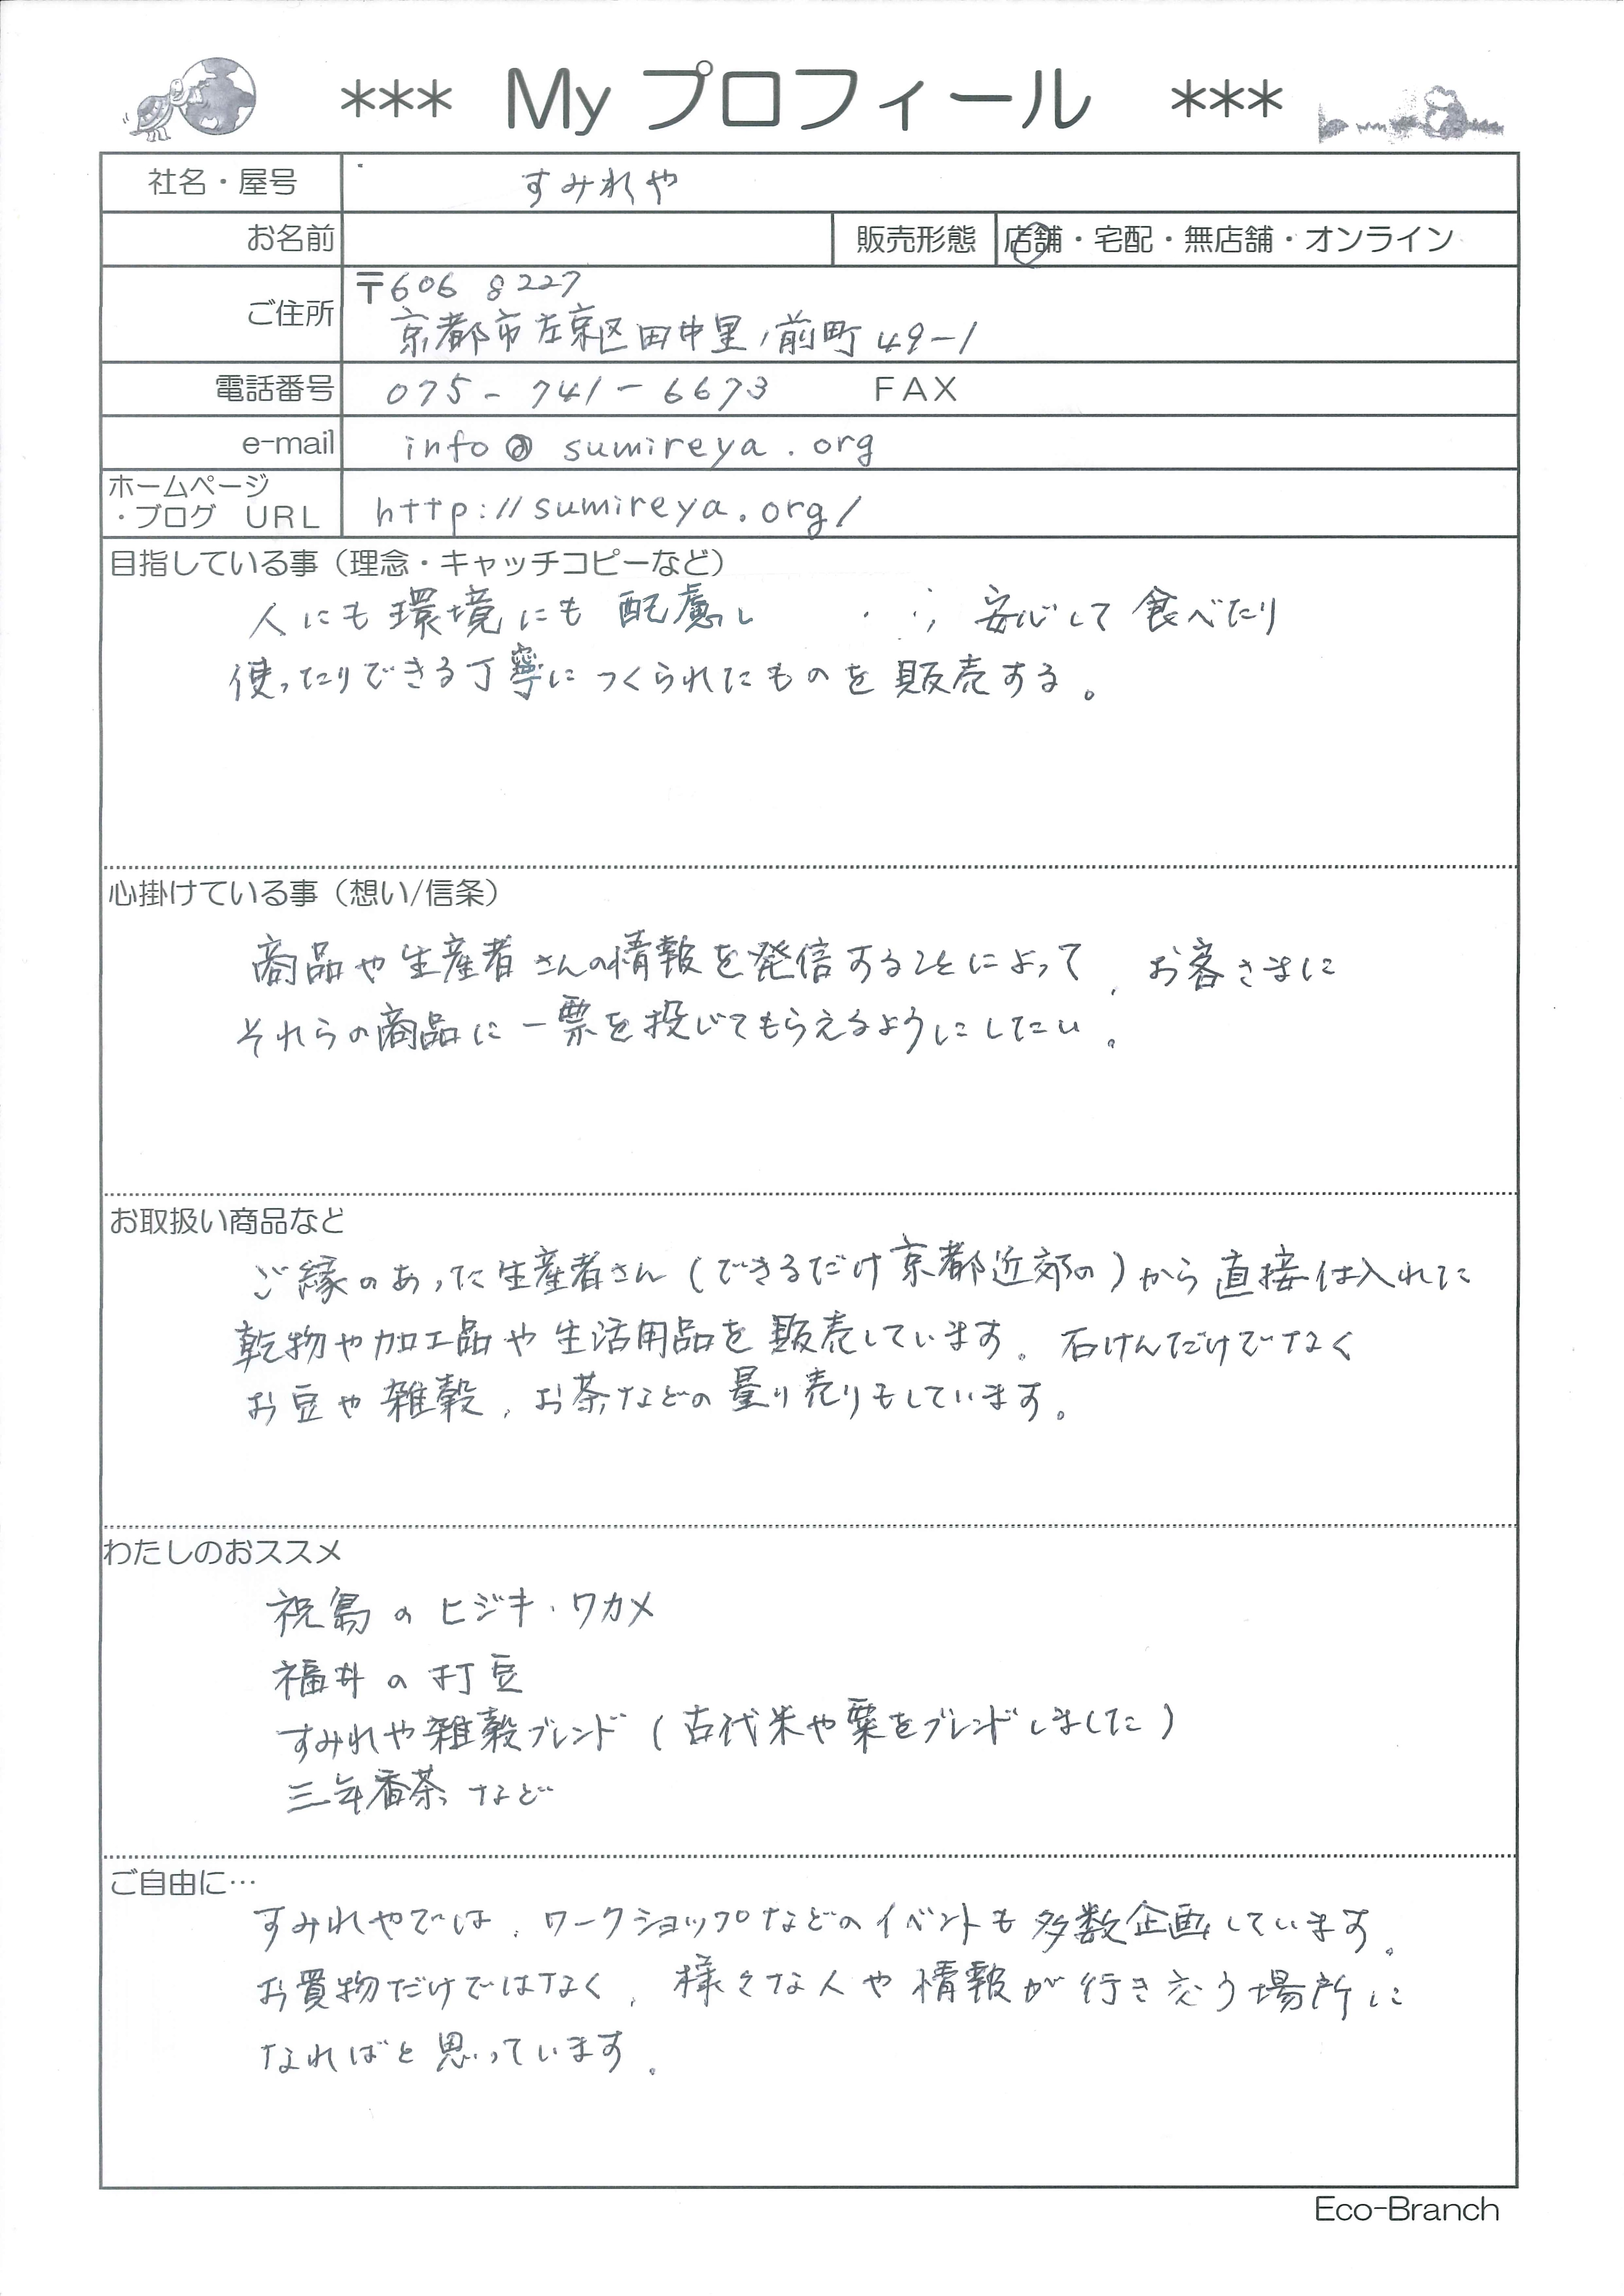 *** My プロフィール ***
社名・屋号 すみれや
お名前 販売形態 店舗・宅配・無店舗・オンライン
ご住所 〒606 8227
京都市左京区田中里ノ前町49-1
電話番号 075-741-6673 FAX
e-mail info@sumireya.org
ホームページ
・ブログ URL http://sumireya.org/
目指している事(理念・キャッチコピーなど)
人にも環境にも配慮し 安心して食べたり
使ったりできる丁寧につくられたものを販売する。
心掛けている事(想い/信条)
商品や生産者さんの情報を発信することによって、お客さまに
それらの商品に一票を投じてもらえるようにしたい。
お取扱い商品など
ご縁のあった生産者さん(できるだけ京都近郊の)から直接仕入れた
乾物や加工品や生活用品を販売しています。石けんだけでなく
お豆や雑穀、お茶などの量り売りもしています。
わたしのおススメ
祝島のヒジキ・ワカメ
福井の打豆
すみれや雑穀ブレンド(古代米や粟をブレンドしました)
三年番茶など
ご自由に…
すみれやでは、ワークショップなどのイベントも多数企画しています。
お買物だけではなく、様々な人や情報が行き交う場所に
なればと思っています。
Eco-Branch